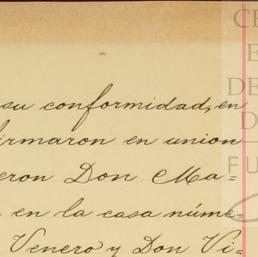 su conformidad, en
firmaron en union
eron Don Ma=
en la casa núme=
Venero y Don Vi=